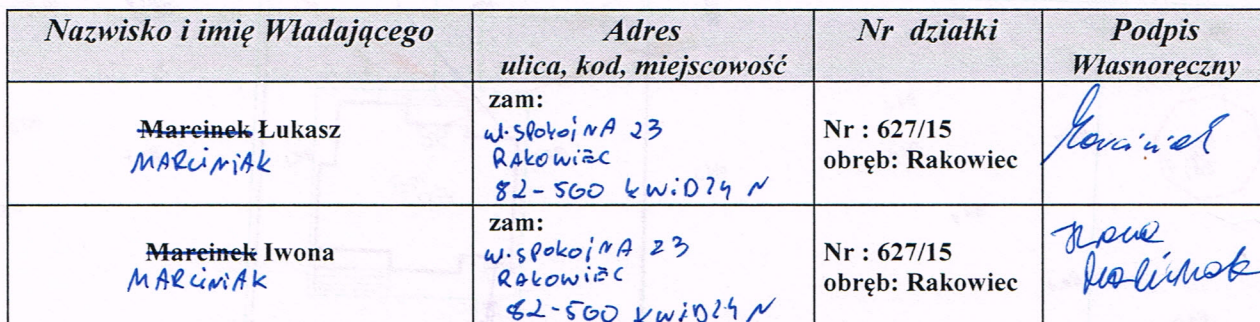 Nazwisko i imię Władającego
Adres
ulica, kod, miejscowość
Nr działki
Podpis
Własnoręczny
Marcinek Łukasz
MARCINIAK
zam:
ul. SPOKOJNA 23
RAKOWIEC
82-500 KWIDZYN
Nr : 627/15
obręb: Rakowiec
Marciniak
Marcinek Iwona
MARCINIAK
zam:
ul. SPOKOJNA 23
RAKOWIEC
82-500 KWIDZYN
Nr : 627/15
obręb: Rakowiec
Iwona
Marciniak